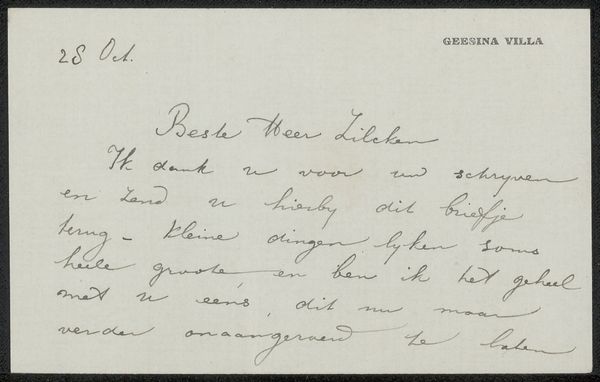 GEESINA VILLA
28 Oct.
Beste Heer Zilcken
Ik dank u voor uw schryven
en zend u hierby dit briefje
terug - kleine dingen lyken soms
heele groote, en ben ik het geheel
met u eens, dit nu maar
verder onaangeroerd te laten